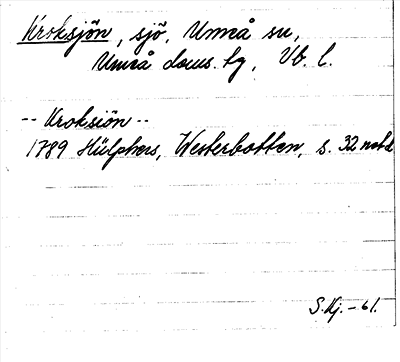 Kroksjön, sjö, Umeå sn,
Umeå doms. tg, Vb. l.
-- Kroksiön --
1789 Hülphers, Westerbotten, s. 32 not d
S. Kj. - 61.